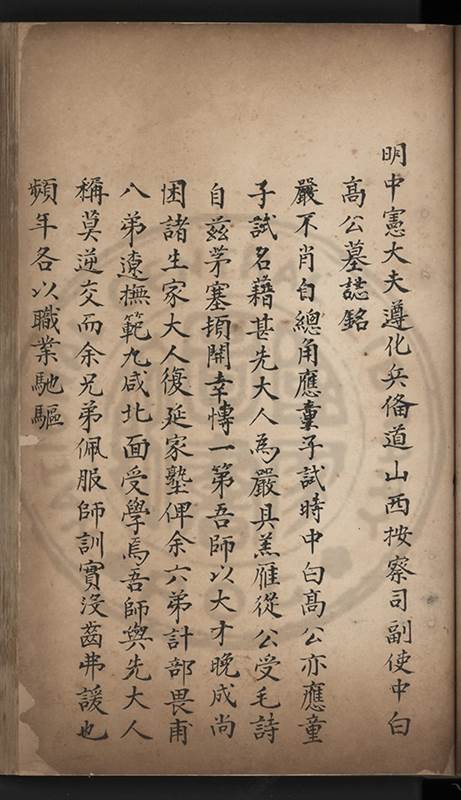 明中憲大夫遵化兵備道山西按察司副使中白
高公墓誌銘
嚴不肖自總角應童子試時中白高公亦應童
子試名藉甚先大人為嚴具羔雁從公受毛詩
自茲茅塞頓開幸慱一第吾師以大才晚成尚
困諸生家大人復延家塾俾余六弟計部畏甫
八弟遼撫範九咸北面受學焉吾師與先大人
稱莫逆交而余兄弟佩服師訓實沒齒弗諼也
頻年各以職業馳驅